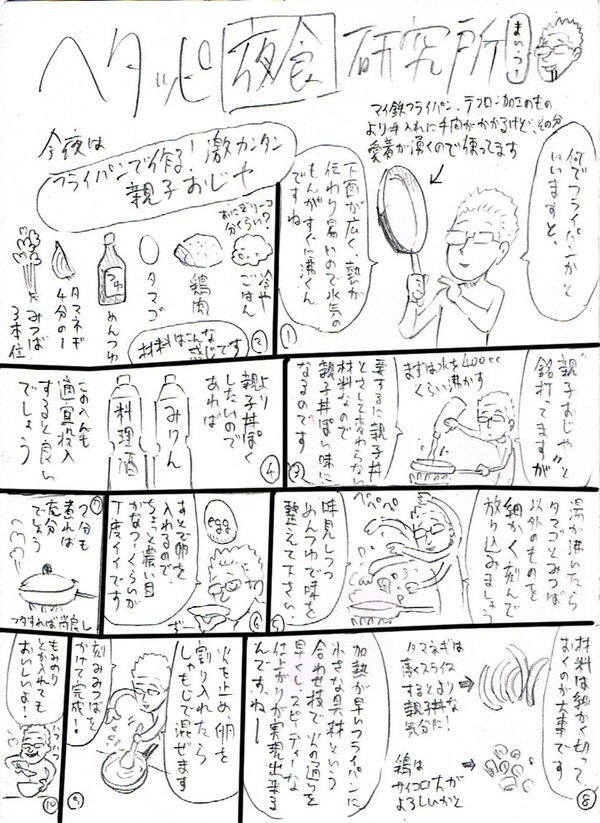 ヘタッピ夜食研究所
まいう!
今夜は
フライパンで作る!激カンタン
親子おじや
マイ鉄フライパン、テフロン加工のもの
より手入れに手間がかかるけど、その分
愛着が湧くので使ってます
何でフライパンかと
いいますと、
下面が広く、熱が
伝わり易いので水気の
もんがすぐに沸くん
ですね
①
おにぎり一コ
分くらい?
冷や
ごはん
鶏肉
タマゴ
つゆ
めんつゆ
タマネギ
4分の1
みつば
3本位
材料はこんな
感じです
②
"親子おじや"と
銘打ってますが
まずは水を400cc
くらい沸かす
要するに親子丼
とさして変わらない
材料なので
親子丼ぽい味に
なるのです
③
より
親子丼ぽく
したいので
あれば
みりん
料理酒
このへんも
適宜投入
すると良い
でしょう
④
湯が沸いたら
タマゴとみつば
以外のものを
細かく刻んで
放り込みましょう
味見しつつ
めんつゆで味を
整えて下さい
⑤
egg
あとで卵を
入れるので
ちょっと濃い目
かな?くらいが
丁度イイです
ずー
⑥
⑦
2分も
煮れば
充分
でしょう
フタすれば尚良し
材料は細かく切って
おくのが大事です
タマネギは
薄くスライス
するとより
親子丼な
気分だ!
鶏は
サイコロ大が
よろしいかと
加熱が早いフライパンに
小さな具材という
合わせ技で火の通りを
早くし、スピーディーな
仕上がりが実現出来る
んですねー
⑧
火を止め、卵を
割り入れたら
しゃもじで混ぜます
刻みみつばを
かけて完成!
⑨
もみのり
とか入れても
おいしいよ!
⑩